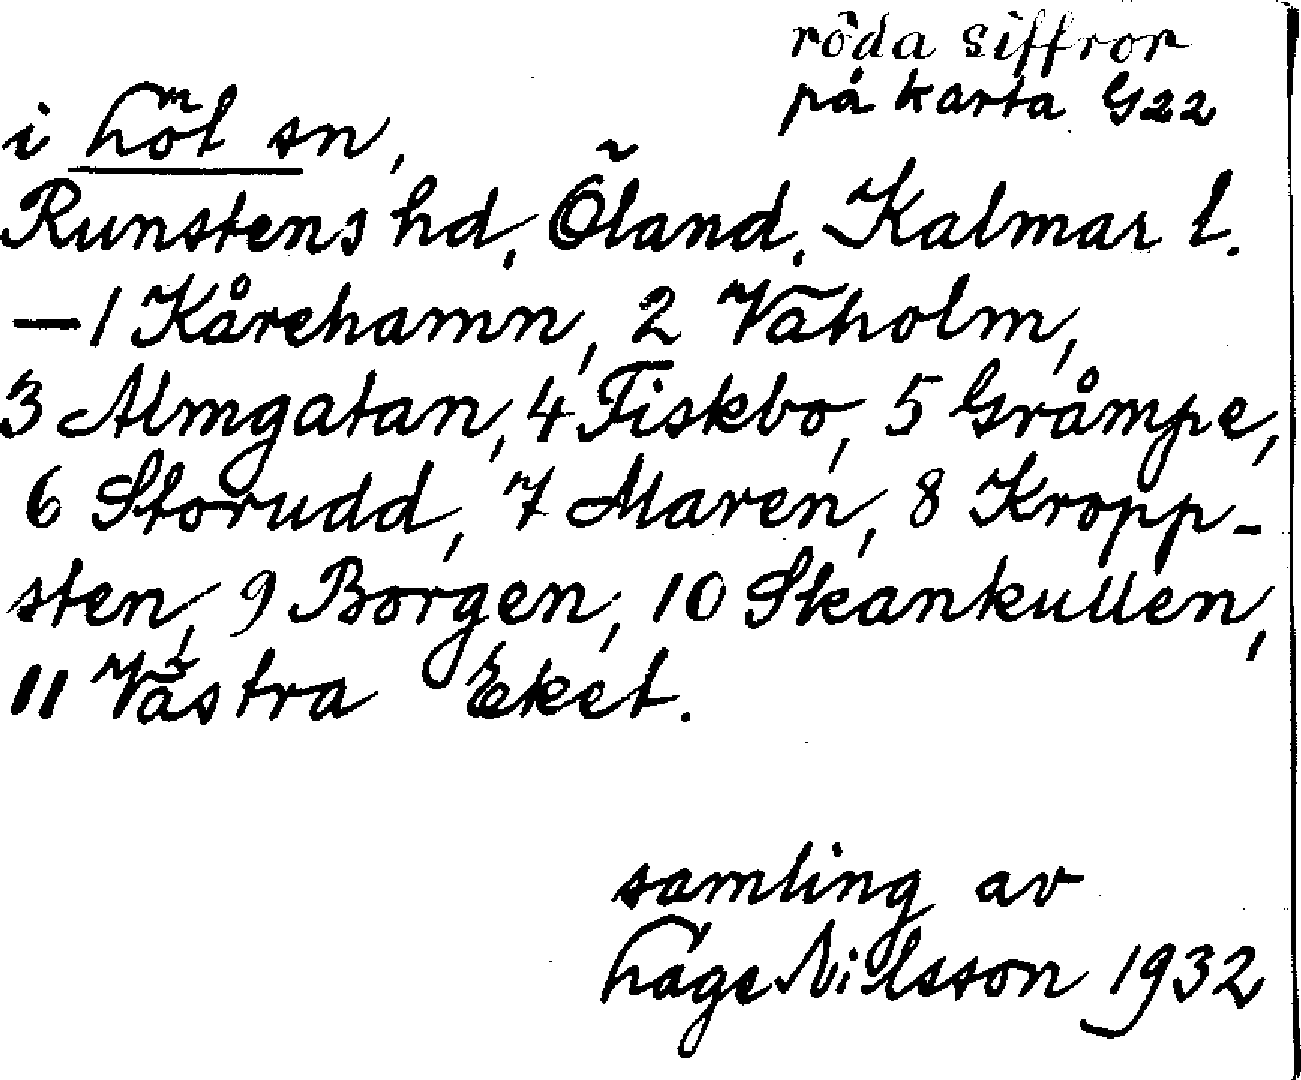 röda siffror
på karta G22
i Löt sn,
Runstens hd, Öland, Kalmar l.
– 1 Kårehamn, 2 Väholm,
3 Almgatan, 4 Fiskbo, 5 Gråmpe,
6 Storudd, 7 Maren, 8 Kropp-
sten, 9 Borgen, 10 Skankullen,
11 Västra Eket.
samling av
Tage Nilsson 1932